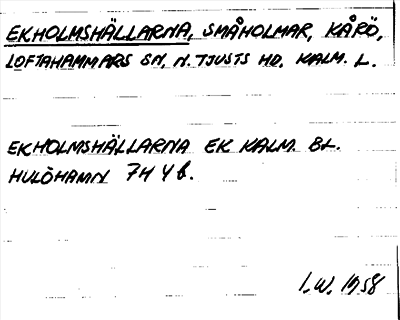 EKHOLMSHÄLLARNA, SMÅHOLMAR, KÅRÖ,
LOFTAHAMMARS SN, N. TJUSTS HD, KALM. L.
EKHOLMSHÄLLARNA EK KALM. BL.
HULÖHAMN 7H 4 b.
I.W. 1958